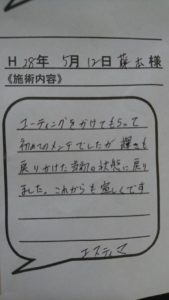 H 28年 5月 12日 藤広 様
《施術内容》
コーティングをかけてもらって
初めてのメンテでしたが 輝きも
戻りかけた当初の状態に戻り
ました。これからも宜しくです
エスティマ